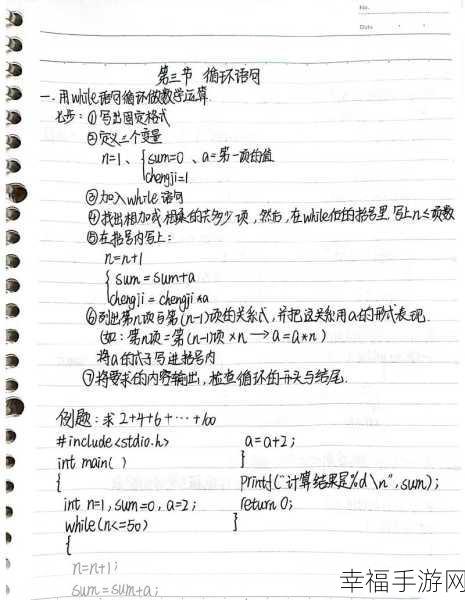 No.
Date
第三节 循环语句
一.用while语句循环做数学运算.
七步:①写出固定格式
②定义三个变量
n=1、{sum=0、a=第一项的值
chengji=1
③加入while语句
④找出相加或相乘的共多少项,然后,在while后的括号里,写上n≤项数
⑤在括号内写上:
n=n+1
{ sum=sum+a
chengji=chengji*a
⑥列出第n项与第(n-1)项的关系式,并把这关系用a的形式表现.
(如:第n项=第(n-1)项×n→a=a*n)
将a的式子写进括号内
⑦将要求的内容输出,检查循环的开头与结尾.
例题:求2+4+6+…+100
#include<stdio.h>
int main( )
{
int n=1,sum=0,a=2;
while(n<=50)
{
n=n+1;
sum=sum+a;
a=a+2;
}
printf("计算结果是%d\n",sum);
return 0;
}
幸福手游网